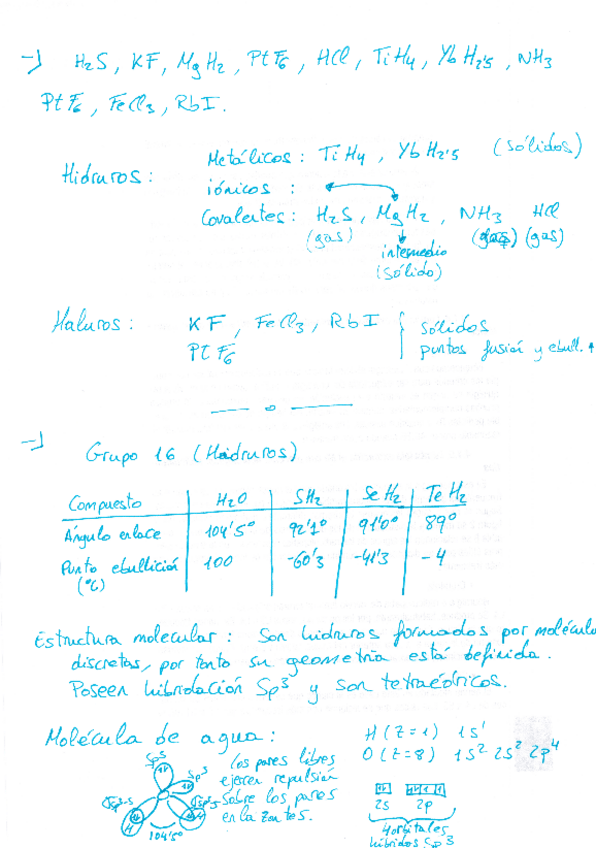 → H₂S, KF, MgH₂, PtF₆, HCl, TiH₄, YbH₂'₅, NH₃
PtF₆, FeCl₃, RbI.
Hidruros:
Metálicos: TiH₄, YbH₂'₅ (sólidos)
iónicos :
Covalentes: H₂S, MgH₂, NH₃ HCl
(gas) (gas) (gas)
intermedio
(sólido)
Haluros: KF, FeCl₃, RbI
PtF₆
sólidos
puntos fusión y ebull. ↑
→ Grupo 16 (Hidruros)
Compuesto | H₂O | SH₂ | SeH₂ | TeH₂
Ángulo enlace | 104'5° | 92'1° | 91'0° | 89°
Punto ebullición | 100 | -60'3 | -41'3 | -4
(°C)
Estructura molecular: Son hidruros formados por molécula
discretas, por tanto su geometría está definida.
Poseen hibridación Sp³ y son tetraédricos.
Molécula de agua:
Sp³
Sp³
104'5°
Los pares libres
ejercen repulsión
sobre los pares
enlazantes.
H (Z=1) 1s¹
O (Z=8) 1s² 2s² 2p⁴
2s 2p
4 orbitales
híbridos Sp³